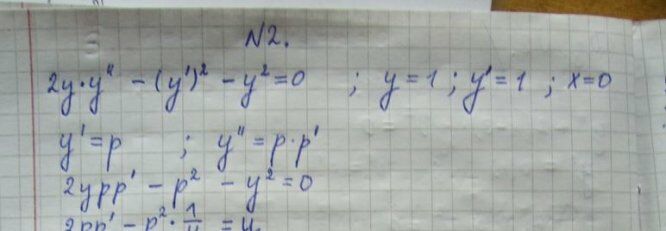 N2.
2y·y'' - (y')² - y² = 0 ; y = 1 ; y' = 1 ; x = 0
y' = p ; y'' = p·p'
2ypp' - p² - y² = 0
2pp' - p²·1/y = y